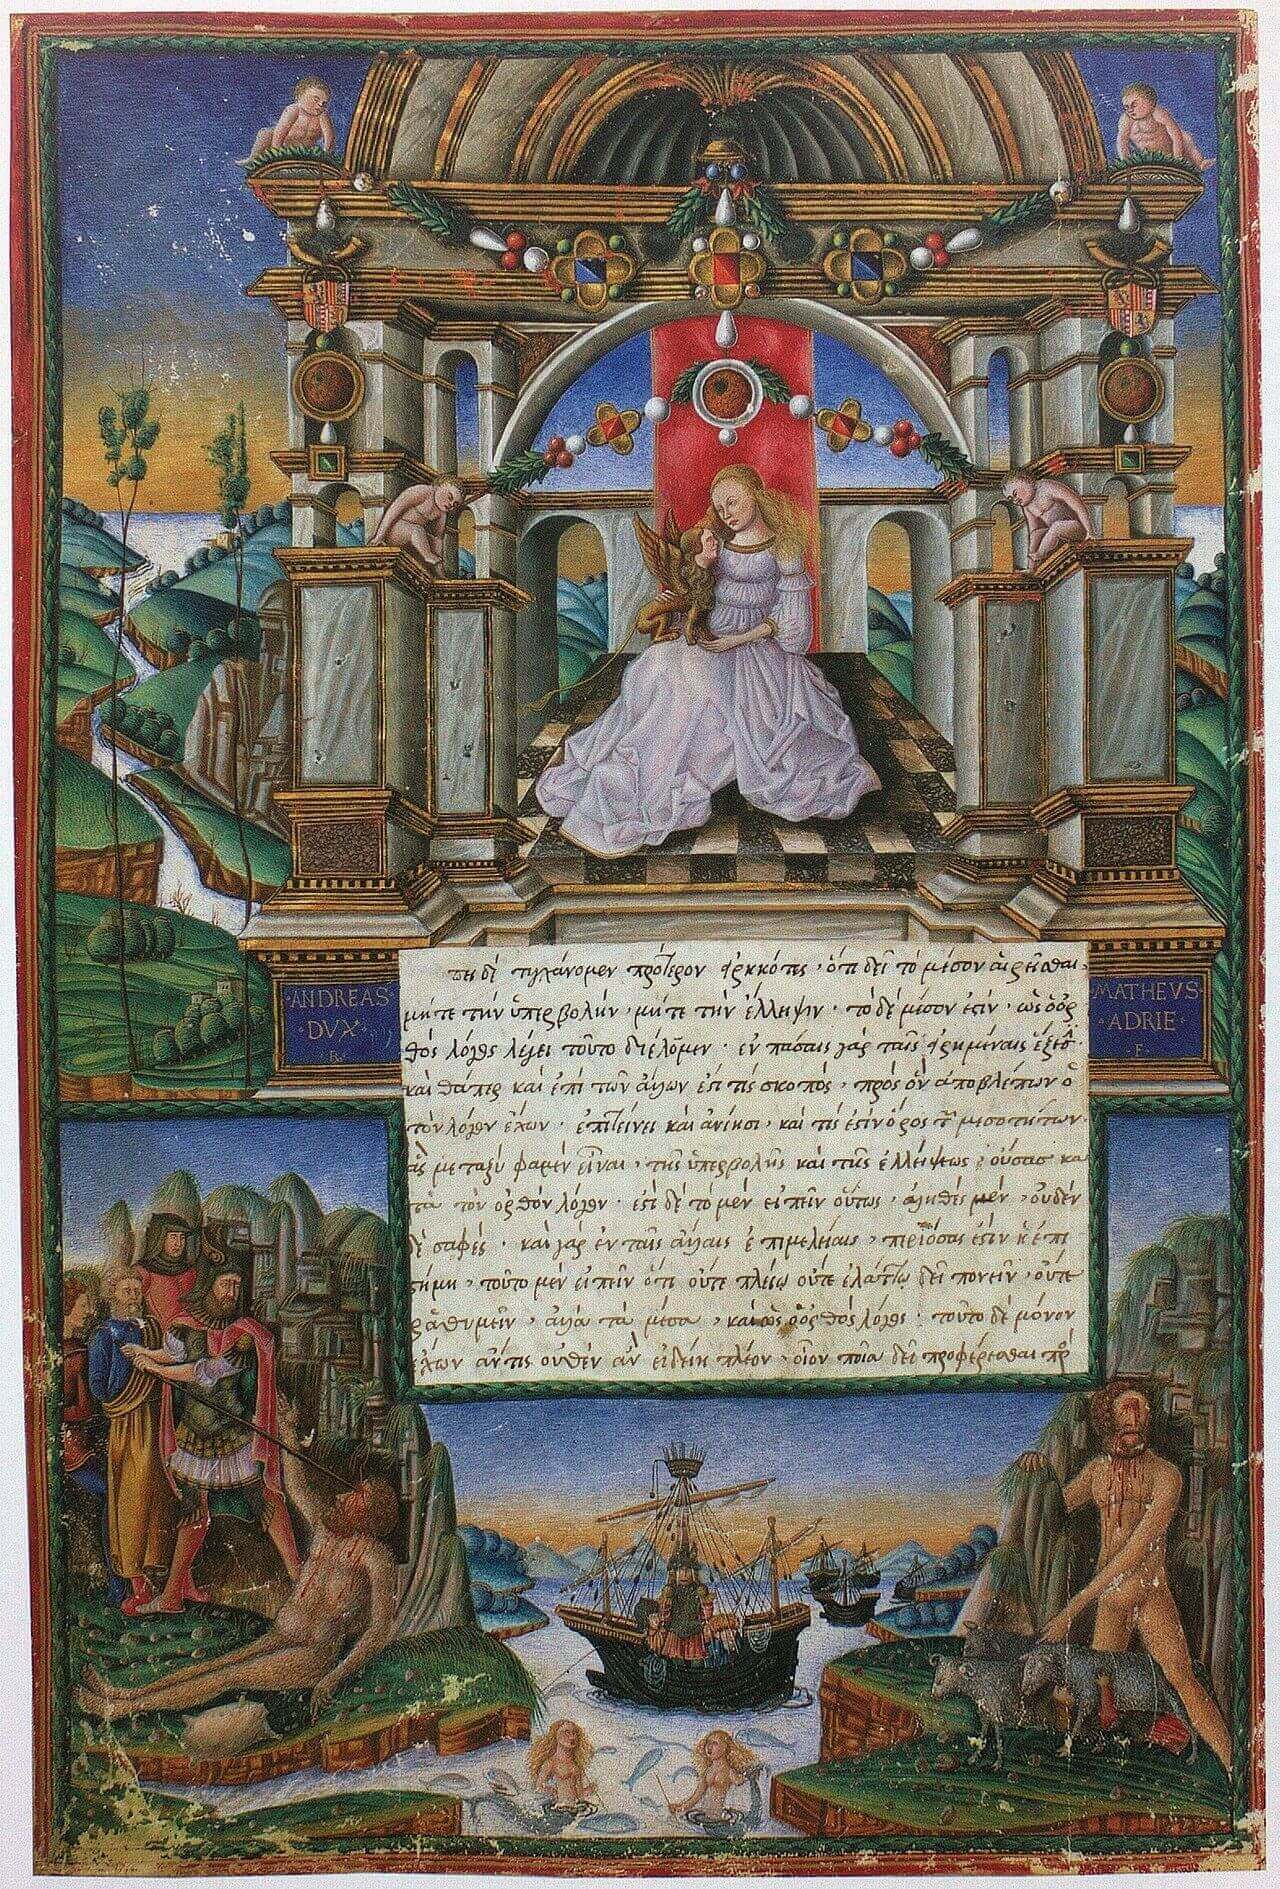 πει δὲ τυγχάνομεν πρότερον εἰρηκότες, ὅτι δεῖ τὸ μέσον αἱρεῖσθαι,
μήτε τὴν ὑπερβολὴν, μήτε τὴν ἔλλειψιν, τὸ δὲ μέσον ἐστὶν, ὡς ὁ ὀρ
θὸς λόγος λέγει τοῦτο διέλωμεν. ἐν πάσαις γὰρ ταῖς εἰρημέναις ἕξεσι
καθάπερ καὶ ἐπὶ τῶν ἄλλων ἐστί τις σκοπὸς, πρὸς ὃν ἀποβλέπων ὁ
τὸν λόγον ἔχων, ἐπιτείνει καὶ ἀνίησι, καὶ τίς ἐστιν ὅρος τῶν μεσοτήτων
ἃς μεταξύ φαμεν εἶναι, τῆς ὑπερβολῆς καὶ τῆς ἐλλείψεως, οὔσας κα
τὰ τὸν ὀρθὸν λόγον. ἐστὶ δὲ τὸ μὲν εἰπεῖν οὕτως, ἀληθὲς μὲν, οὐδὲν
δὲ σαφές. καὶ γὰρ ἐν ταῖς ἄλλαις ἐπιμελείαις, περὶ ὅσας ἐστὶν ἐπι
στήμη, τοῦτο μὲν εἰπεῖν ὅτι οὔτε πλείω οὔτε ἐλάττω δεῖ πονεῖν, οὔτε
ῥαθυμεῖν, ἀλλὰ τὰ μέσα, καὶ ὡς ὁ ὀρθὸς λόγος. τοῦτο δὲ μόνον
ἔχων ἄν τις οὐθὲν ἂν εἰδείη πλέον. οἷον ποῖα δεῖ προσφέρεσθαι πρὸς
·ANDREAS·
DVX·
MATHEVS·
·ADRIE·
·F·